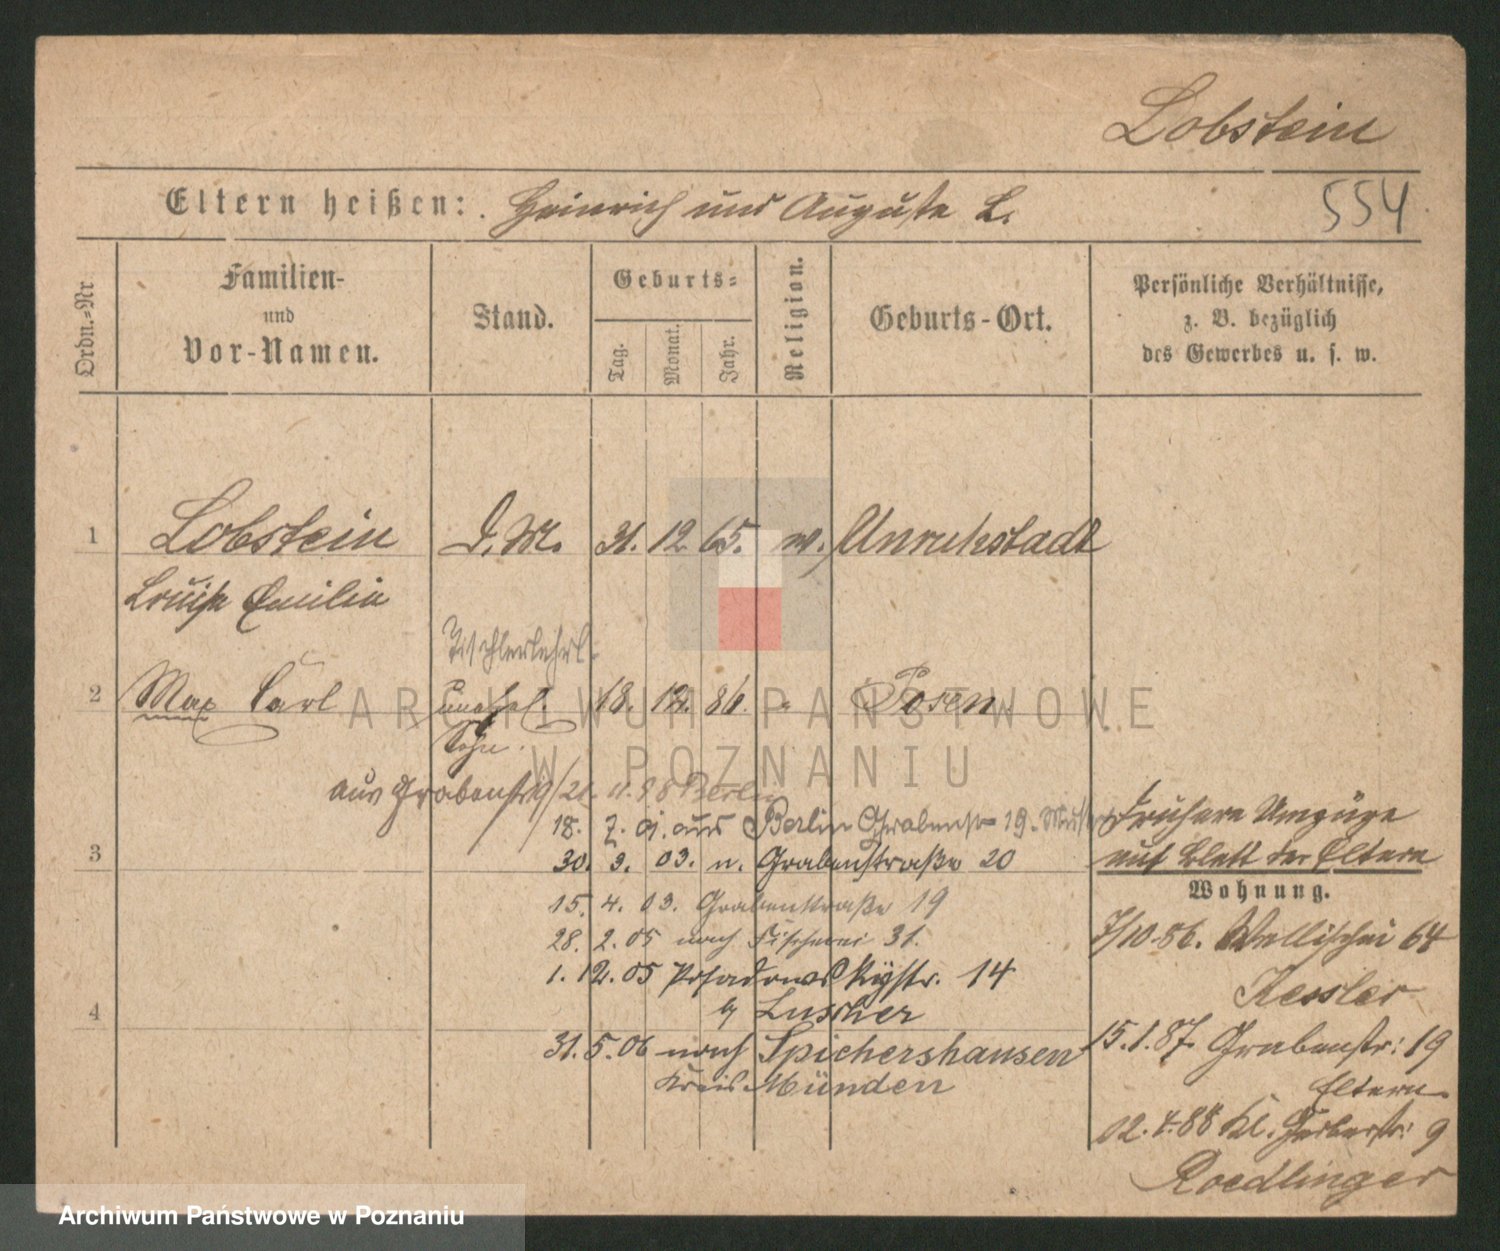 Lobstein
Eltern heißen: Heinrich und Auguste L.
554
Ordn.=Nr
Familien-
und
Vor-Namen.
Stand.
Geburts=
Tag.
Monat.
Jahr.
Religion.
Geburts-Ort.
Persönliche Verhältnisse,
z. B. bezüglich
des Gewerbes u. s. w.
1 Lobstein D. M. 31. 12. 65. Unruhstadt
Louise Emilie
Tischlerlehrl.
2 Max Carl unehel. 18. 12. 86. " Posen
Sohn.
ARCHIWUM PAŃSTWOWE
W POZNANIU
aus Grabenstr 19/ 88 Berlin
18. 7. 01. aus Berlin Grabenstr 19.
3 30. 3. 03. n. Grabenstraße 20
15. 4. 03. Grabenstraße 19
28. 2. 05 nach Fischerei 31.
1. 12. 05 Posadowskystr. 14
b/ Luscher
4
31. 5. 06 nach Spichershausen
Kreis Münden
Frühere Umzüge
auf Blatt der Eltern
Wohnung.
7/10.86. Wallischei 64
Kessler
15.1.87. Grabenstr: 19
Eltern
02.4.88 Kl. Gerberstr: 9
Roedlinger
Archiwum Państwowe w Poznaniu